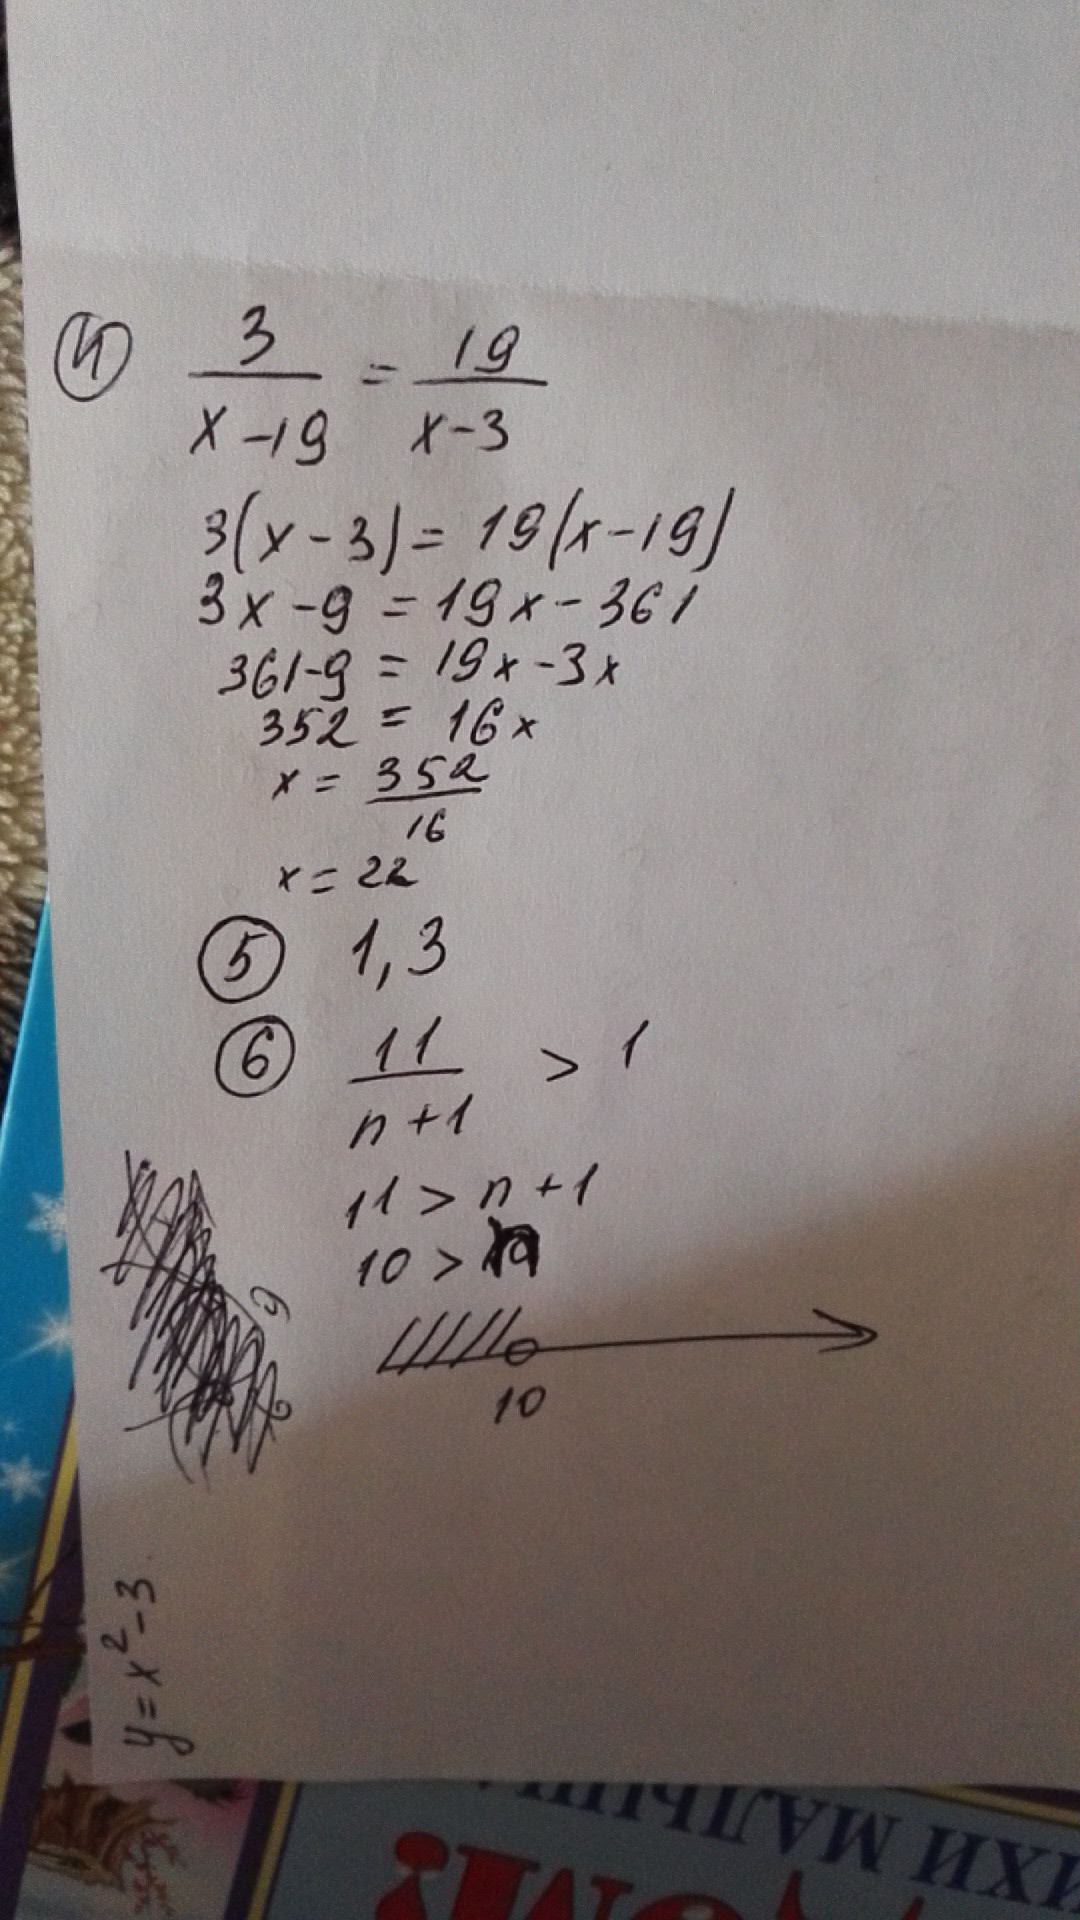 4
3/(x-19) = 19/(x-3)
3(x-3) = 19(x-19)
3x-9 = 19x-361
361-9 = 19x-3x
352 = 16x
x = 352/16
x = 22
5 1,3
6 11/(n+1) > 1
11 > n+1
10 > n
10
y=x²-3
ИХИ МАЛЫША